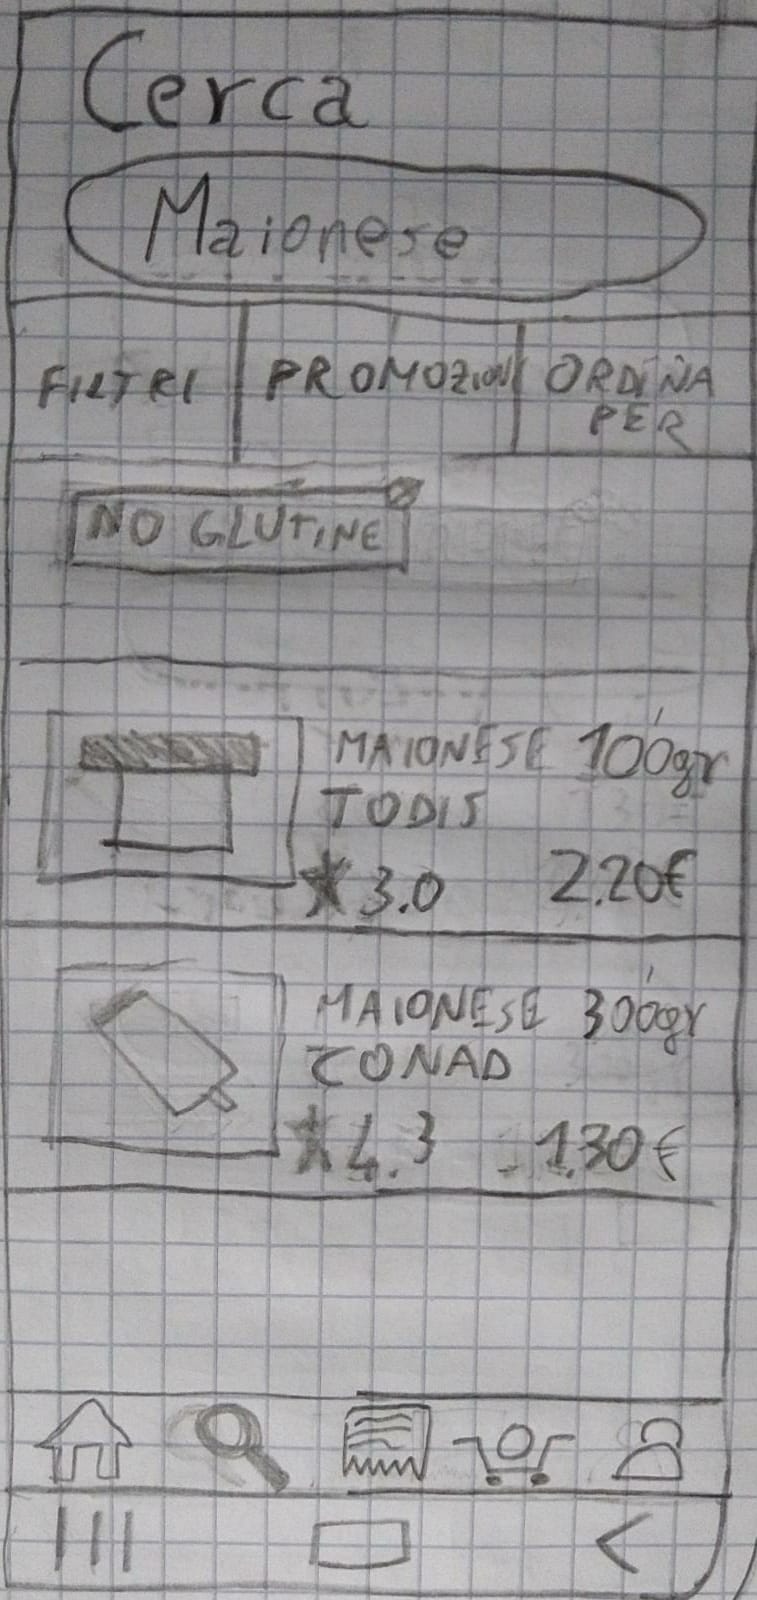 Cerca
Maionese
FILTRI PROMOZIONI ORDINA
PER
NO GLUTINE
MAIONESE 100gr
TODIS
★3.0 2.20€
MAIONESE 300gr
CONAD
★4.3 1.30€